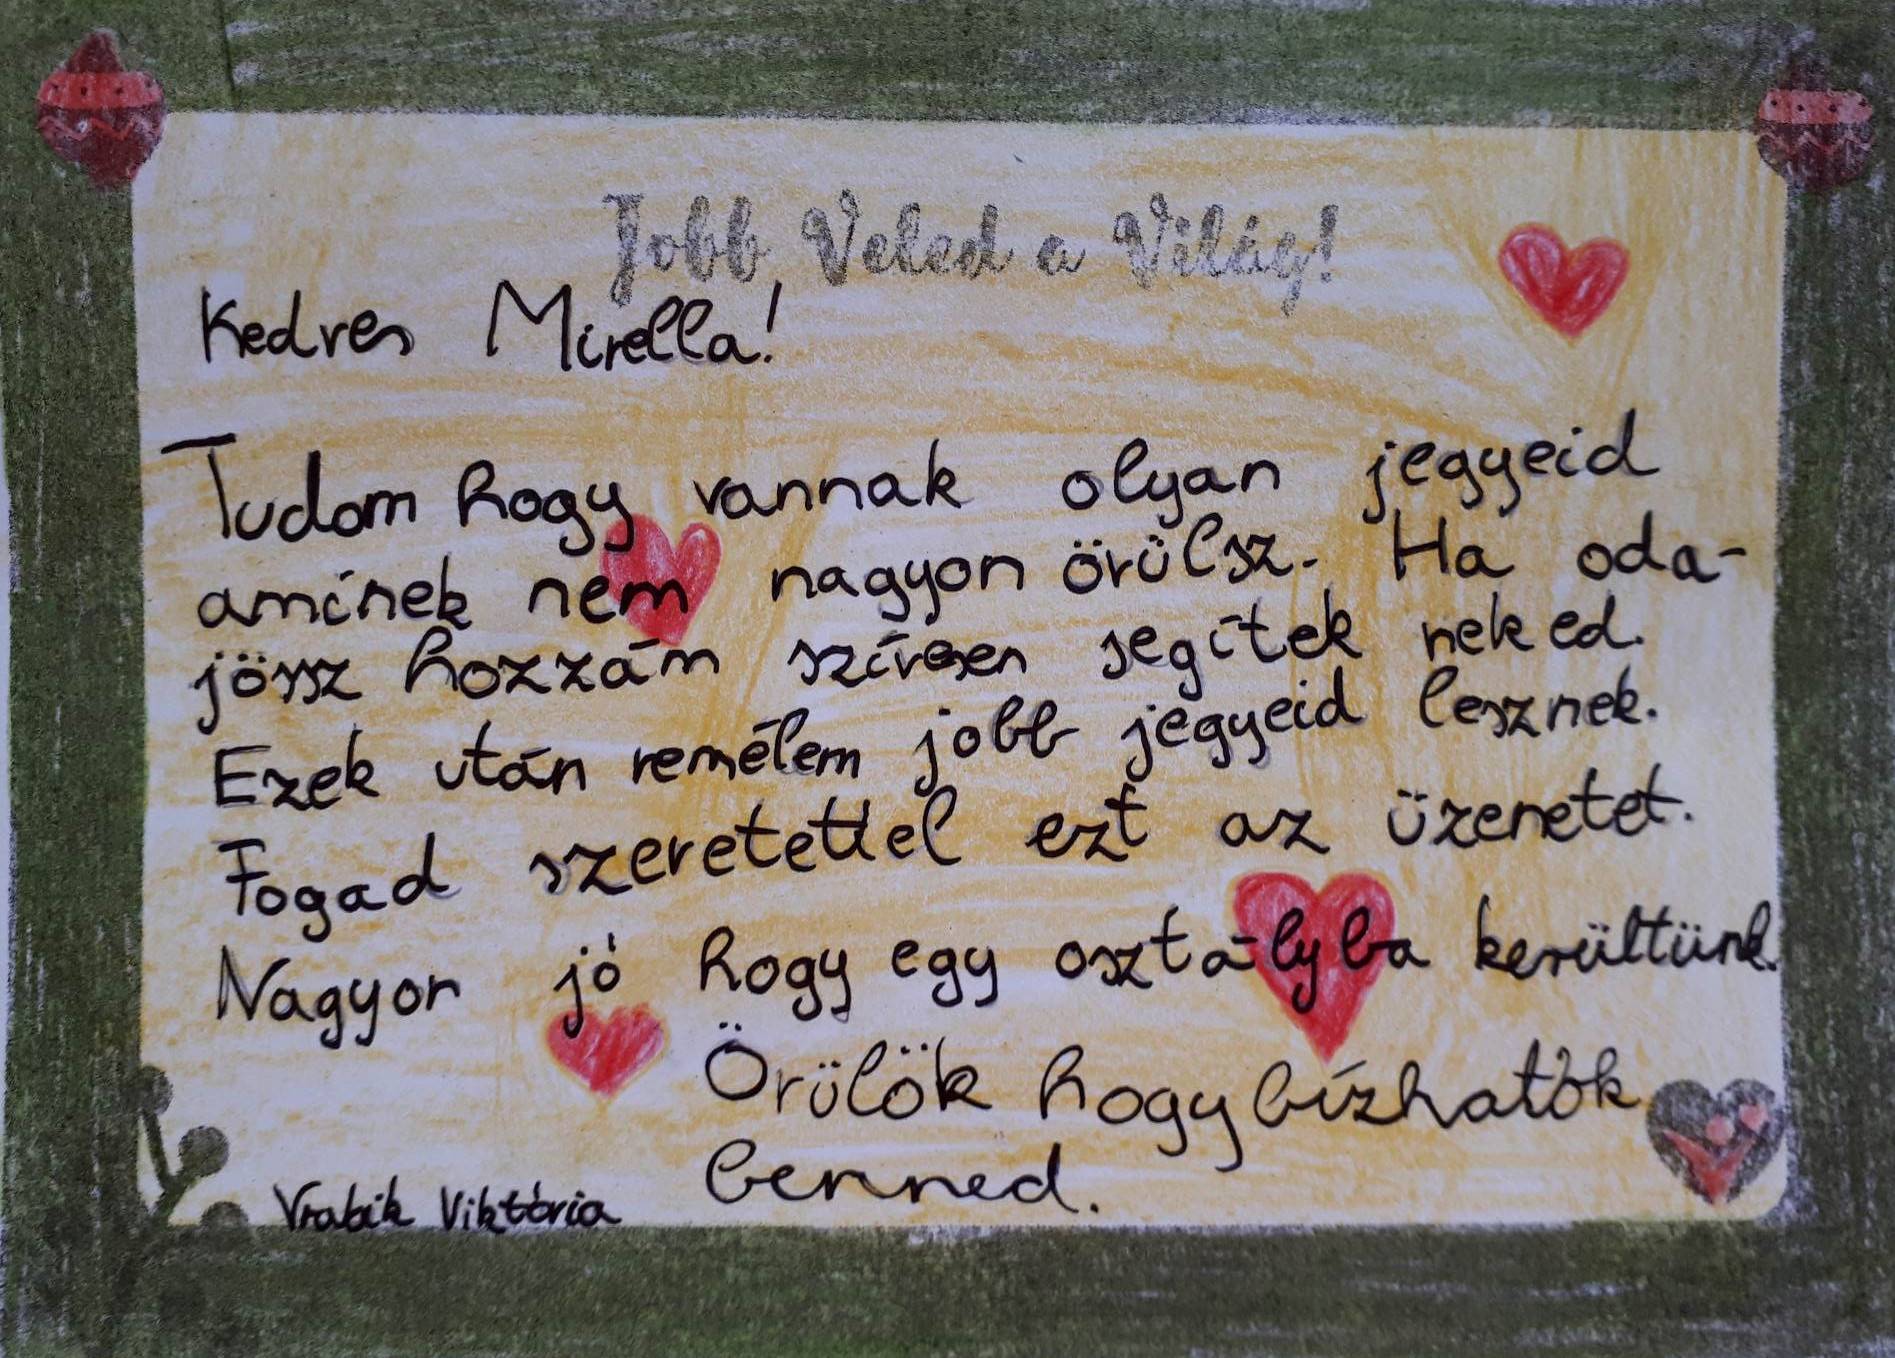 Jobb Veled a Világ!
Kedves Mirella!
Tudom hogy vannak olyan jegyeid
aminek nem nagyon örülsz. Ha oda-
jössz hozzám szívesen segítek neked.
Ezek után remélem jobb jegyeid lesznek.
Fogad szeretettel ezt az üzenetet.
Nagyon jó hogy egy osztályba kerültünk.
Örülök hogy bízhatok
benned.
Vrabik Viktória